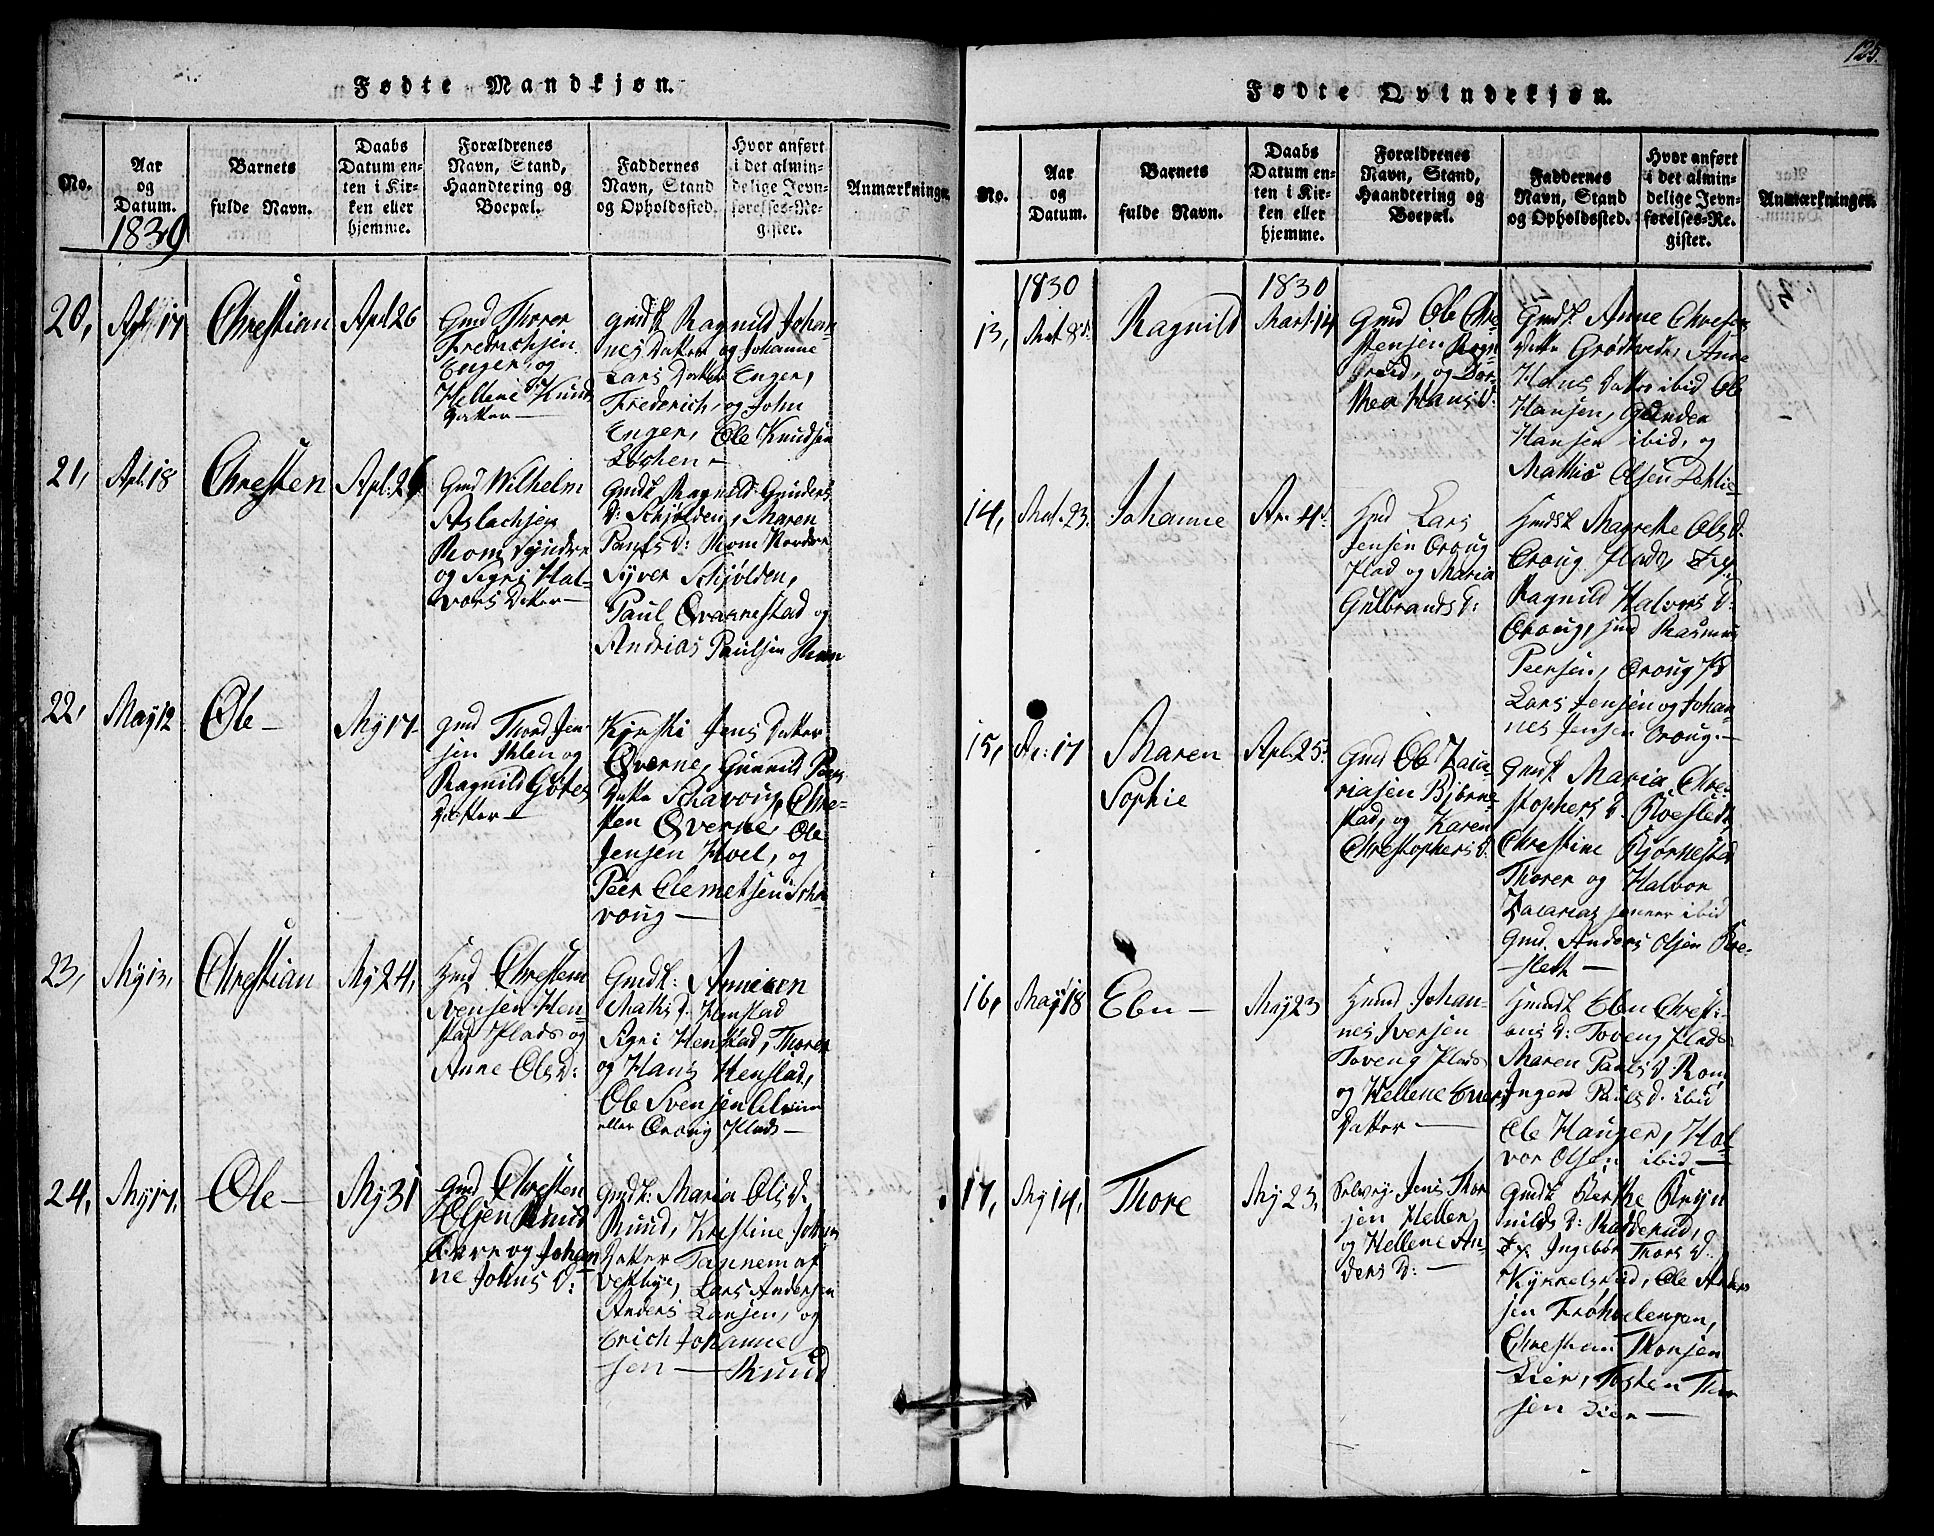 125.
Fødte Mandkjøn.
No.
Aar
og
Datum.
Barnets
fulde Navn.
Daabs
Datum en-
ten i Kir-
ken eller
hjemme.
Forældrenes
Navn, Stand,
Haandtering og
Boepæl.
Faddernes
Navn, Stand
og Opholdssted.
Hvor anført
i det almin-
delige Jevn-
førelses-Re-
gister.
Anmærkninger.
1830
20, Apl 17 Chrestian Apl 26
Gmd Thorer
Fredrichsen
Enger og
Hellene Knuds
Datter —
Gmdk Ragnild Johan
nes Datter og Johanne
Lars Datter Enger,
Frederich, og John
Enger, Ole Knudsen
Lochen —
21, Apl. 18 Chresten Apl. 26
Gmd Wilhelm
Aslachsen
Rom Syndre
og Sigri Hal-
vors Datter —
Gmdk Ragnild Gunders
D: Schjølden, Maren
Pauls D: Rom Nordre
Syver Schjølden,
Paul Qvarnestad og
Andrias Paulsen Rom
22, May 12 Ole — My 17
Gmd Thord Jen-
sen Ihlen og
Ragnild Gotes
Datter —
Kjersti Jens Datter
Qverne, Gunnild Peers
Datter Schavoug, Chre-
sten Qverne, Ole
Jensen Hoel, og
Peer Clemetsen Scha-
voug —
23, My 13, Chrestian My 24,
Hmd Chresten
Svensen Hen-
stad Plads og
Anne Ols D:
Gmdk: Anniken
Mathis D. Henstad
Sigri Henstad, Thorer
og Hans Henstad,
Ole Svensen
eller Croug Plads —
24, My 17, Ole — My 31
Gmd Chresten
Olsen Ruud
og Johan
ne Johns D:
Gmdk: Maria Ols D.
Ruud, Kristine Johans
Datter Tannem af
Vestbye, Lars Andersen
Anders Larsen, og
Erich Johanne
sen — Ruud
Fødte Qvindekjøn.
No.
Aar
og
Datum.
Barnets
fulde Navn.
Daabs
Datum en-
ten i Kir-
ken eller
hjemme.
Forældrenes
Navn, Stand,
Haandtering og
Boepæl.
Faddernes
Navn, Stand
og Opholdssted.
Hvor anført
i det almin-
delige Jevn-
førelses-Re-
gister.
Anmærkninger.
1830 1830
13, Mart 8d Ragnild Mart. 14
Gmd Ole Chre-
stensen
og Dor-
thea Hans D:
Gmdk Anne Chresten
Datter Grødtvedt, Anne
Hans Datter ibid Ole
Hansen, Gunder
Hansen ibid, og
Mathis Olsen Dehlie —
14, Mrt. 23. Johanne Ap. 4d
Hmd Lars
Jensen Croug
Plad og Maria
Gulbrands D:
Hmdsk Magrethe Ols D.
Croug Plads,
Ragnild Halvors D:
Croug, Rasmus
Peersen, Croug
Lars Jensen og Johan-
nes Jensen Croug. —
15, Ap: 17 Maren
Sophie Apl. 25.
Gmd Ole Zaca-
riasen Bjørne
stad, og Karen
Chrestophers D.
Gmdk Maria Chre-
stophers D.
Chrestine Bjørnestad
Thorer og Halvor
Zacarias sønner ibid
Gmd. Anders Olsen
— sleth —
16, May 18 Ebn — May 23
Hmd Johan-
nes Iversen
Toveng Plads
og Hellene Iver
Datter —
Hmdk Ebn Chresti-
ans D: Toveng Plads
Maren Pauls D: Rom
Ingen Pauls D. ibid
Ole Hauger, Hal-
vor Olsen ibid —
17, My 14, Thore My 23,
Jens Thor
sen Heller
og Hellene An-
ders D: —
Gmdk Berthe Bryn
nilds D: Radderud,
Ingebor Thors D.
Kykkelsrud, Ole Anders
sen Frøhaelengen,
Chrestian Thorsen
Lier, Tosten Thor
sen Lier —